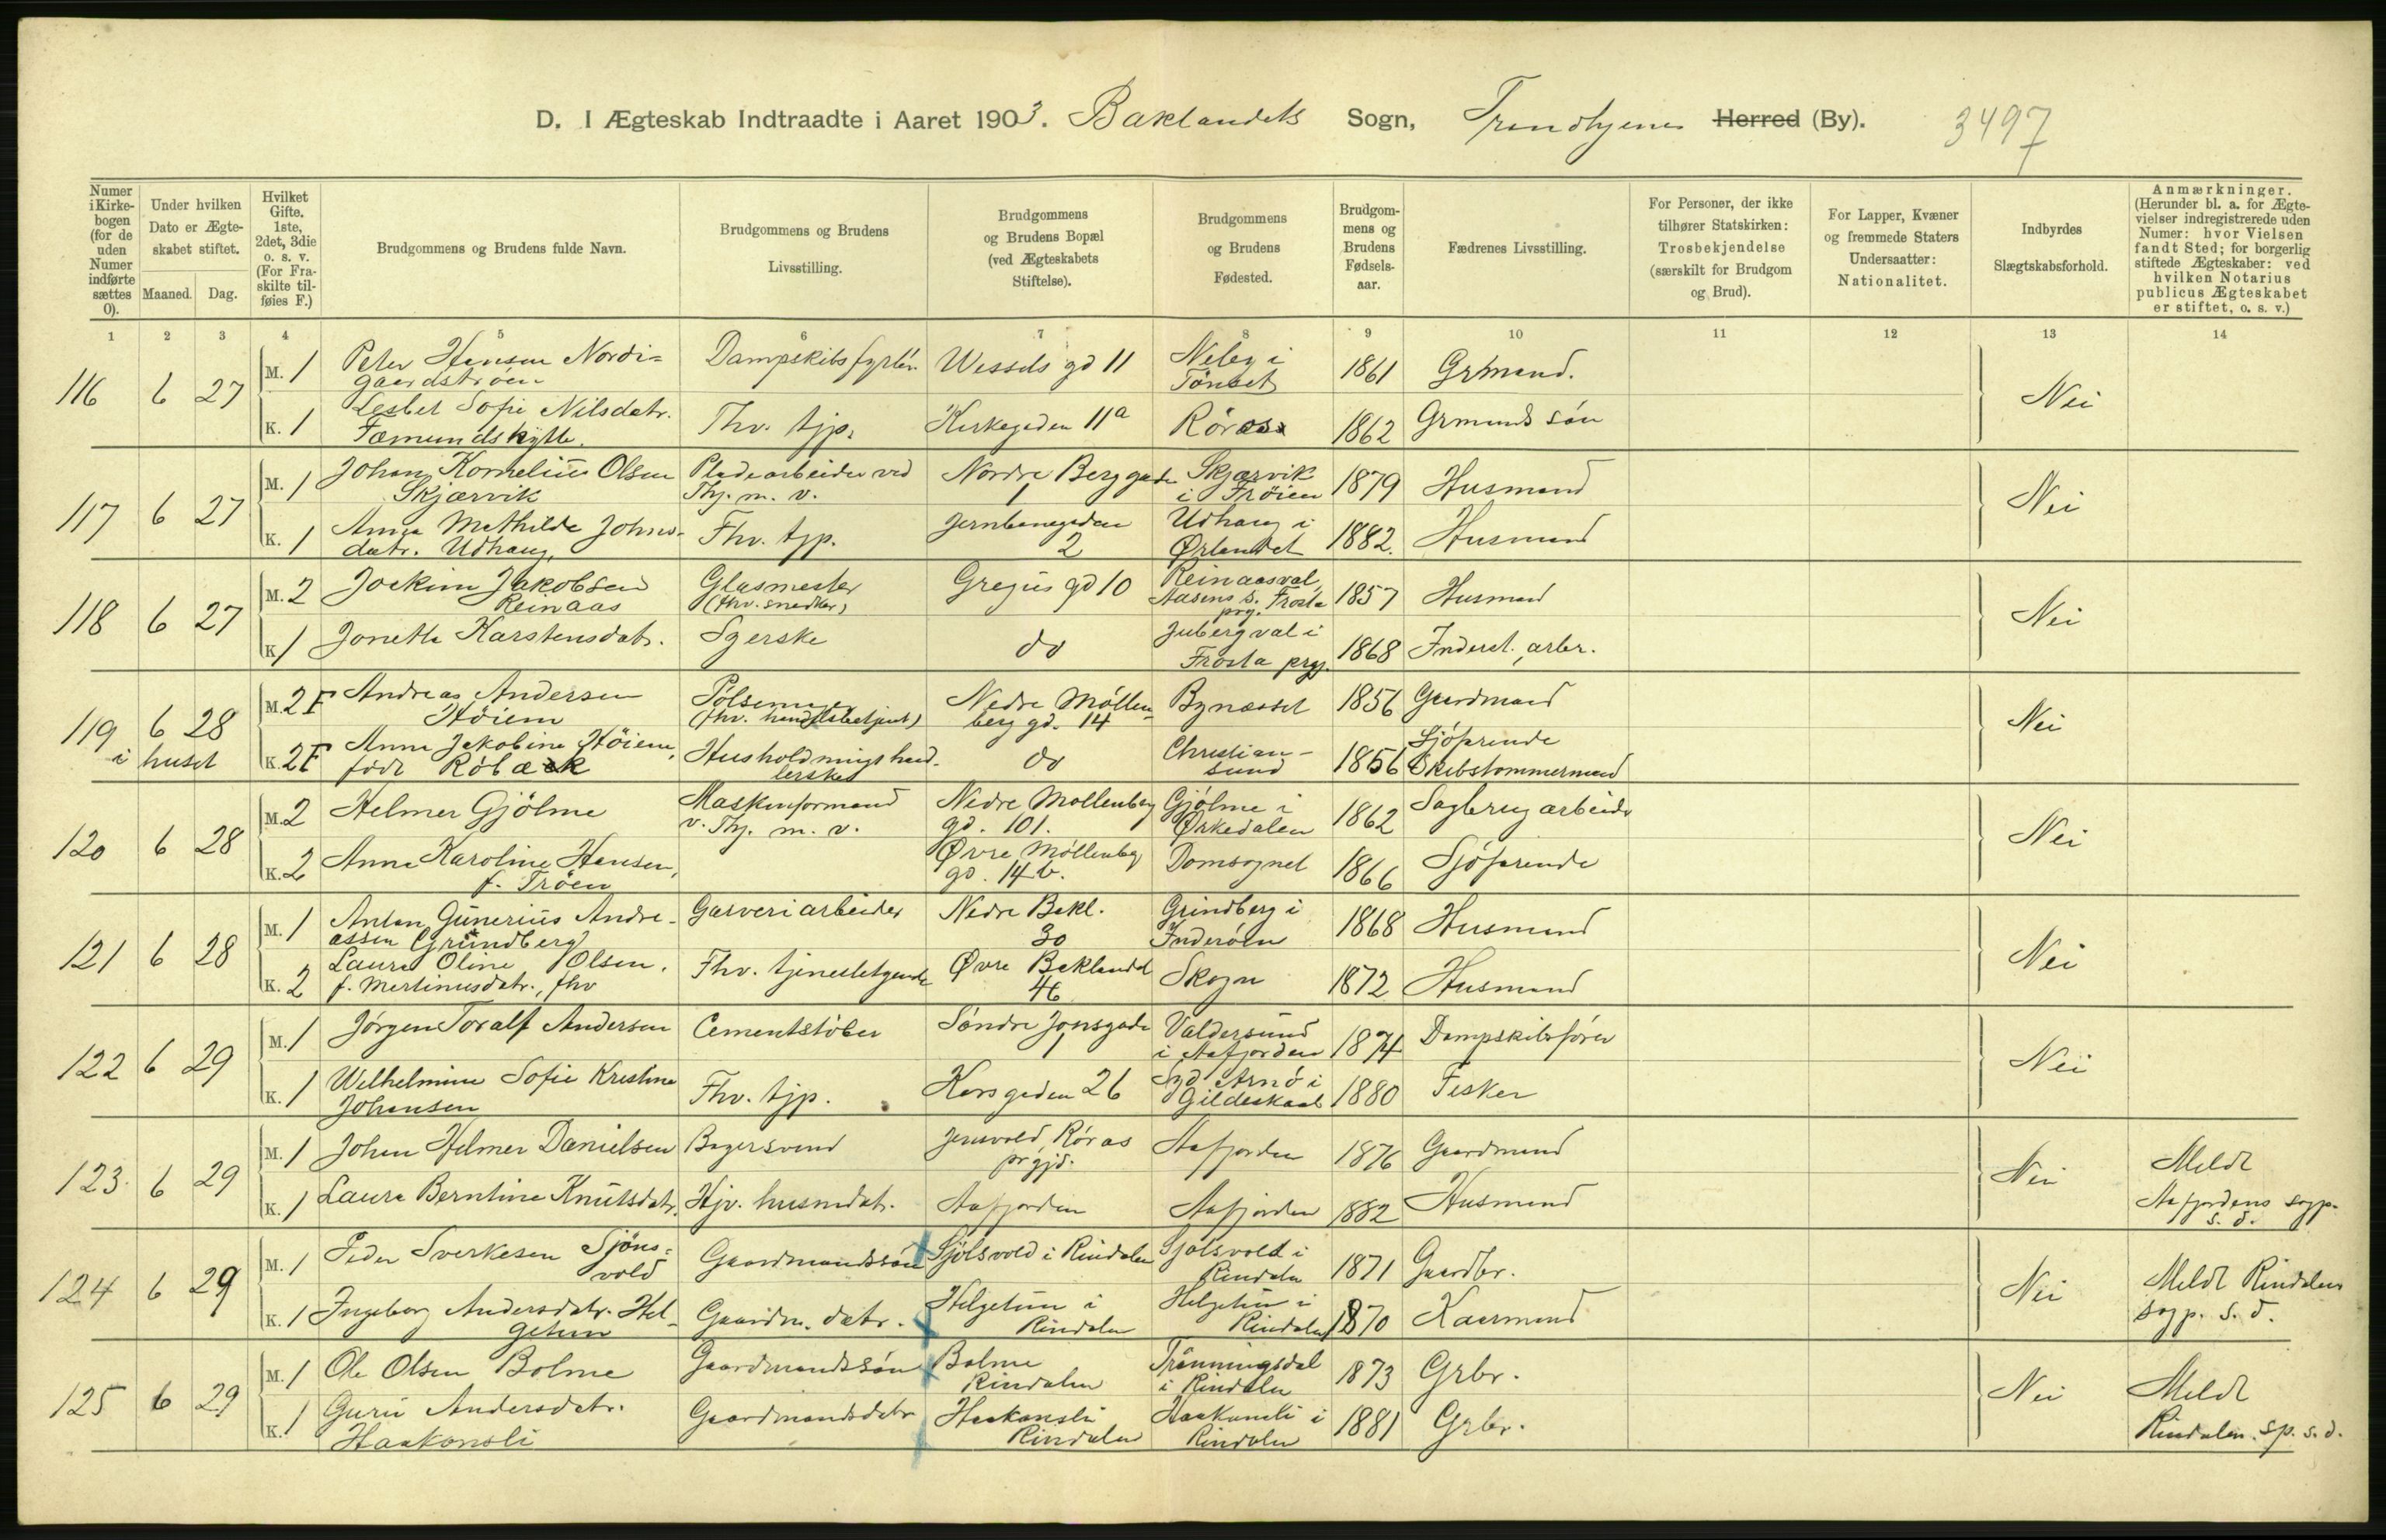 D. I Ægteskab Indtraadte i Aaret 1903. Baklandets Sogn, Trondhjems Herred (By). 3497
Numer i Kirke-bogen (for de uden Numer indførte sættes 0).
Under hvilken Dato er Ægte-skabet stiftet.
Maaned. Dag.
Hvilket Gifte. 1ste, 2det, 3die o. s. v. (For Fra-skilte til-føies F.)
Brudgommens og Brudens fulde Navn.
Brudgommens og Brudens Livsstilling.
Brudgommens og Brudens Bopæl (ved Ægteskabets Stiftelse).
Brudgommens og Brudens Fødested.
Brudgom-mens og Brudens Fødsels-aar.
Fædrenes Livsstilling.
For Personer, der ikke tilhører Statskirken: Trosbekjendelse (særskilt for Brudgom og Brud).
For Lapper, Kvæner og fremmede Staters Undersaatter: Nationalitet.
Indbyrdes Slægtskabsforhold.
Anmærkninger. (Herunder bl. a. for Ægte-vielser indregistrerede uden Numer: hvor Vielsen fandt Sted; for borgerlig stiftede Ægteskaber: ved hvilken Notarius publicus Ægteskabet er stiftet, o. s. v.)
1 2 3 4 5 6 7 8 9 10 11 12 13 14
116 6 27 M. 1 Peter Hansen Nordi=gaardstrøen Dampskibsfyrbr. Wessels gd 11 Neby i Tønset 1861 Grmand. Nei
K. 1 Lesbet Sofie Nilsdatr. Fæmundshytte. Fhv. tjp. Kirkegaden 11a Røros 1862 Grmands søn
117 6 27 M. 1 Johan Kornelius Olsen Skjærvik Pladearbeider ved Thj. m. v. Nordre Berggade 1 Skjærvik i Frøien 1879 Husmand Nei
K. 1 Anna Mathilde Johns-datr. Udhaug, Fhv. tjp. Jernbanegaden 2 Udhaug i Ørlandet 1882. Husmand
118 6 27 M. 2 Joakim Jakobsen Reinaas Glasmester (fhv. snedker) Gregus gd 10 Reinaasval, Aasens s. Frosta prg. 1857 Husmand Nei
K. 1 Jonetta Karstensdatr. Syerske do Jubergval i Frosta prgj. 1868 Inderst. arbr.
119 6 28 i huset M. 2 F Andreas Andersen Høiem Pølsemager (fhv. handelsbetjent) Nedre Møllen-berg gd. 14 Bynæsset 1856 Gaardmand Nei
K. 2 F Anna Jakobine Høiem, født Røbæk Husholdningshand-lerske do Christian-sund 1856 Sjøfarende Skibstømmermand
120 6 28 M. 2 Helmer Gjølme Maskinformand v. Thj. m. v. Nedre Mollenberg gd. 101. Gjølme i Ørkedalen 1862 Sagbrugarbeider Nei
K. 2 Anna Karoline Hansen, f. Trøen Øvre Møllenberg gd. 14 b. Domsognet 1866 Sjøfarende
121 6 28 M. 1 Anton Gunerius Andre-assen Grindberg Garveriarbeider Nedre Bakl. 30 Grindberg i Inderøen 1868 Husmand Nei
K. 2 Laura Oline Olsen, f. Martinusdatr., fhv Fhv. tjenestetgjende Øvre Baklandd 46 Skogn 1872 Husmand
122 6 29 M. 1 Jørgen Toralf Andersen Cementstøber Søndre Jonsgade 1 Valdersund i Aafjorden 1874 Dampskibsfører Nei
K. 1 Wilhelmine Sofie Kristine Johansen Fhv. tjp. Korsgaden 26 Syd Arnø i Gildeskaal 1880 Fisker
123. 6 29 M. 1 Johan Helmer Danielsen Bagersvend Jensvold, Røros prgjd. Aafjorden 1876 Gaardmand Nei Meldt
K. 1 Laura Berntine Knutsdatr. Hjv. husmdatr. Aafjorden Aafjorden 1882 Husmand Aafjordens sogp. s. d.
124 6 29 M. 1 Peder Sverkesen Sjøns=vold Gaardmandssøn Sjølsvold i Rindalen Sjølsvold i Rindalen 1871 Gaardbr. Nei Meldt Rindalens sogp. s. d.
K. 1 Ingeborg Andersdatr. Hel-getun Gaardm. datr. Helgetun i Rindalen Helgetun i Rindalen 1870 Kaarmand
125 6 29 M. 1 Ole Olsen Bolme Gaardmandssøn Bolme Rindalen Trønningsdal i Rindalen 1873 Grbr. Nei Meldt
K. 1 Guru Andersdatr. Haakonsli Gaardmandsdatr Haakonsli Rindalen Haakonsli i Rindalen 1881 Grbr. Rindalen. sp. s. d.